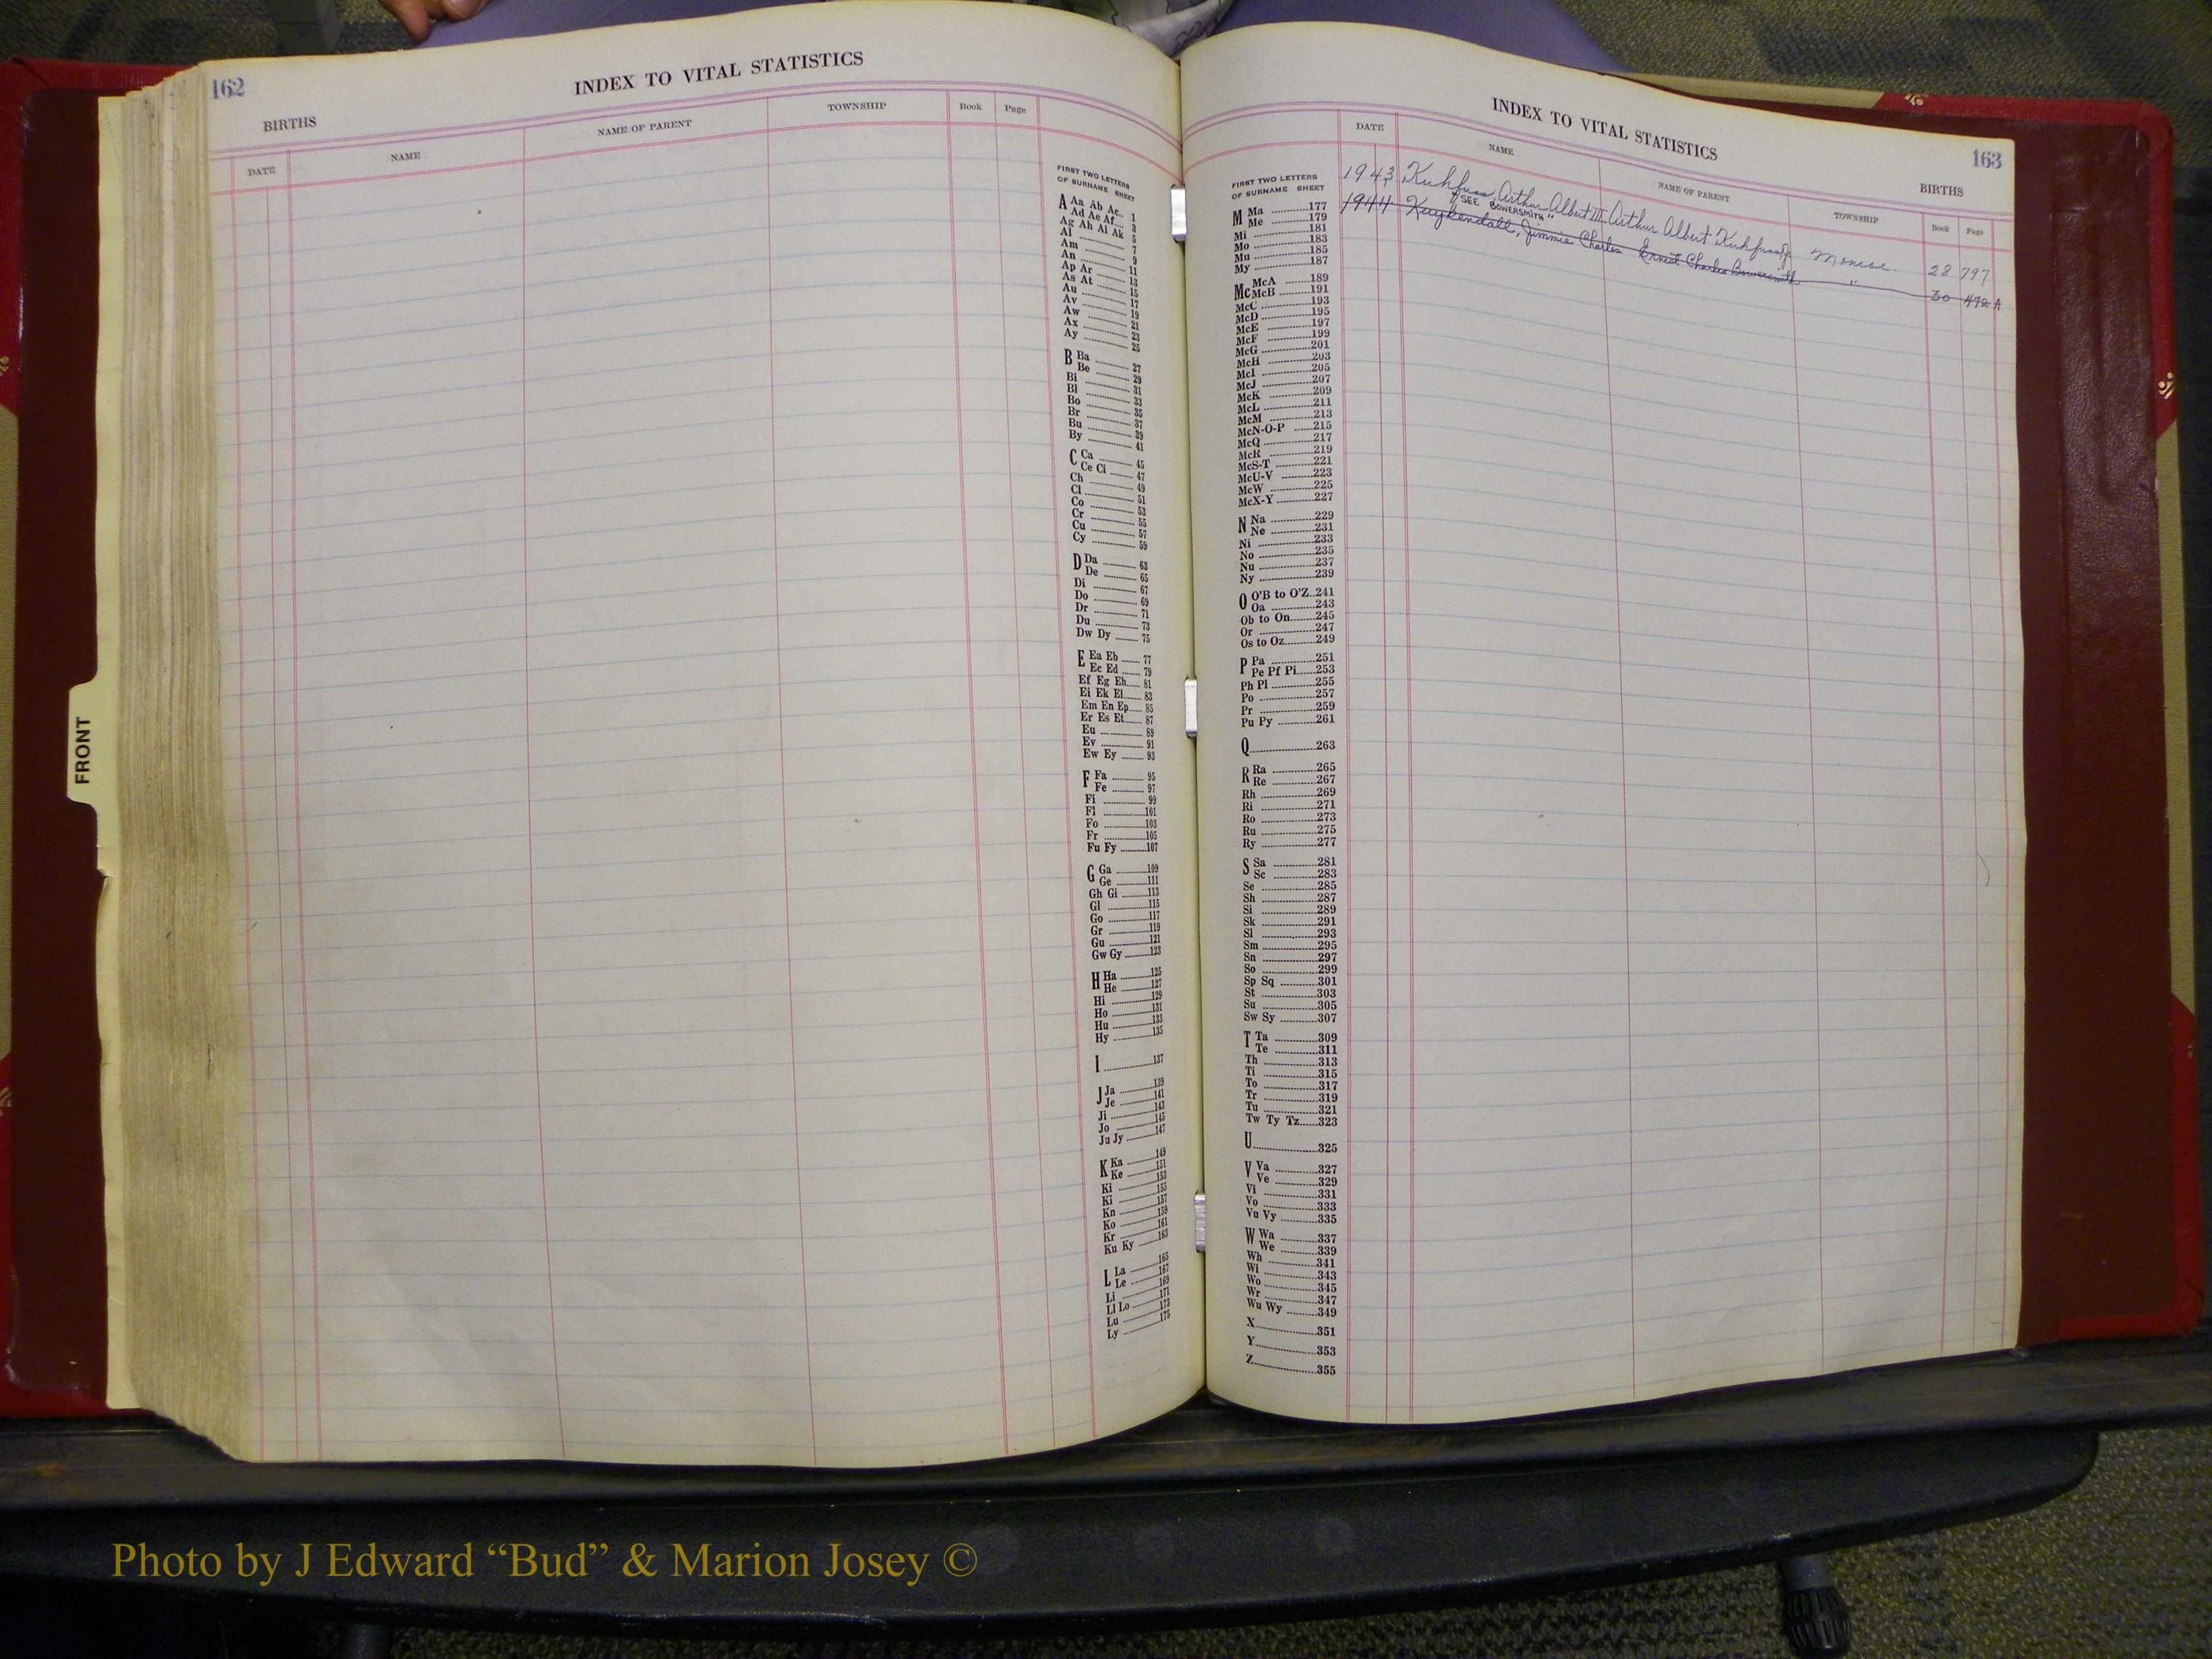 162
INDEX TO VITAL STATISTICS
BIRTHS
DATE NAME NAME OF PARENT TOWNSHIP Book Page
FIRST TWO LETTERS
OF SURNAME SHEET
A Aa Ab Ac 1
Ad Ae Af 3
Ag Ah Ai Ak 5
Al 7
Am 9
An 11
Ap Ar 13
As At 15
Au 17
Av 19
Aw 21
Ax 23
Ay 25
B Ba 27
Be 29
Bi 31
Bl 33
Bo 35
Br 37
Bu 39
By 41
C Ca 45
Ce Ci 47
Ch 49
Cl 51
Co 53
Cr 55
Cu 57
Cy 59
D Da 63
De 65
Di 67
Do 69
Dr 71
Du 73
Dw Dy 75
E Ea Eb 77
Ec Ed 79
Ef Eg Eh 81
Ei Ek El 83
Em En Ep 85
Er Es Et 87
Eu 89
Ev 91
Ew Ey 93
F Fa 95
Fe 97
Fi 99
Fl 101
Fo 103
Fr 105
Fu Fy 107
G Ga 109
Ge 111
Gh Gi 113
Gl 115
Go 117
Gr 119
Gu 121
Gw Gy 123
H Ha 125
He 127
Hi 129
Ho 131
Hu 133
Hy 135
I 137
J Ja 139
Je 141
Ji 143
Jo 145
Ju Jy 147
K Ka 149
Ke 151
Ki 153
Ki 155
Kn 157
Ko 159
Kr 161
Ku Ky 163
L La 165
Le 167
Li 169
Ll Lo 171
Lu 173
Ly 175
INDEX TO VITAL STATISTICS
163
BIRTHS
DATE NAME NAME OF PARENT TOWNSHIP Book Page
1943 Kuhfuss, Arthur Albert III Arthur Albert Kuhfuss Jr. Monroe 28 797
"SEE BOWERSMITH"
1944 Kuykendall, Jimmie Charles Ernest Charles Bowersmith " 30 472 A
FIRST TWO LETTERS
OF SURNAME SHEET
M Ma 177
Me 179
Mi 181
Mo 183
Mu 185
My 187
Mc McA 189
McB 191
McC 193
McD 195
McE 197
McF 199
McG 201
McH 203
McI 205
McJ 207
McK 209
McL 211
McM 213
McN-O-P 215
McQ 217
McR 219
McS-T 221
McU-V 223
McW 225
McX-Y 227
N Na 229
Ne 231
Ni 233
No 235
Nu 237
Ny 239
O O'B to O'Z 241
Oa 243
Ob to On 245
Or 247
Os to Oz 249
P Pa 251
Pe Pf Pi 253
Ph Pl 255
Po 257
Pr 259
Pu Py 261
Q 263
R Ra 265
Re 267
Rh 269
Ri 271
Ro 273
Ru 275
Ry 277
S Sa 281
Sc 283
Se 285
Sh 287
Si 289
Sk 291
Sl 293
Sm 295
Sn 297
So 299
Sp Sq 301
St 303
Su 305
Sw Sy 307
T Ta 309
Te 311
Th 313
Ti 315
To 317
Tr 319
Tu 321
Tw Ty Tz 323
U 325
V Va 327
Ve 329
Vi 331
Vo 333
Vu Vy 335
W Wa 337
We 339
Wh 341
Wi 343
Wo 345
Wr 347
Wu Wy 349
X 351
Y 353
Z 355
FRONT
Photo by J Edward “Bud” & Marion Josey ©